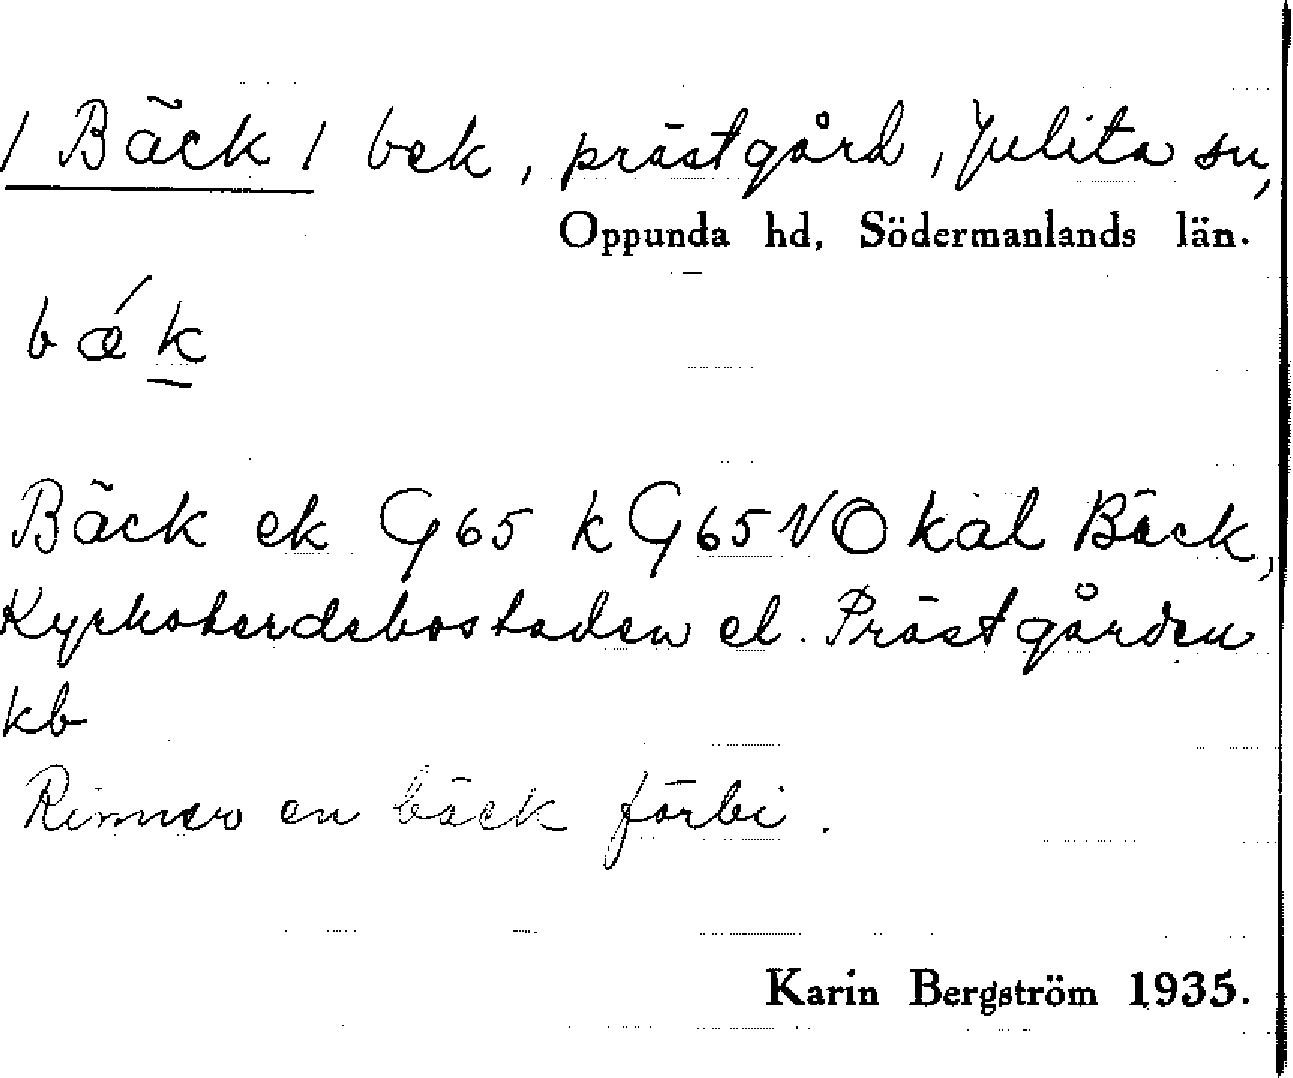 / Bäck / bek, prästgård, Julita sn,
Oppunda hd, Södermanlands län.
bǽk
Bäck ek G65 k G65NO kal Bäck,
Kyrkoherdebostaden el. Prästgården
kb
Rinner en bäck förbi.
Karin Bergström 1935.